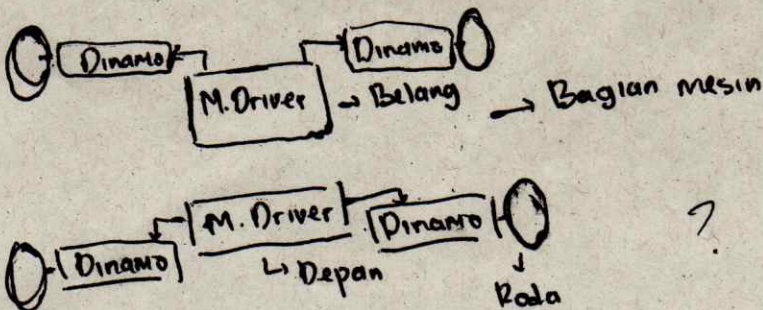 Dinamo
Dinamo
M.Driver → Belang → Bagian mesin
M. Driver
Dinamo
Dinamo
?
↳ Depan
Roda